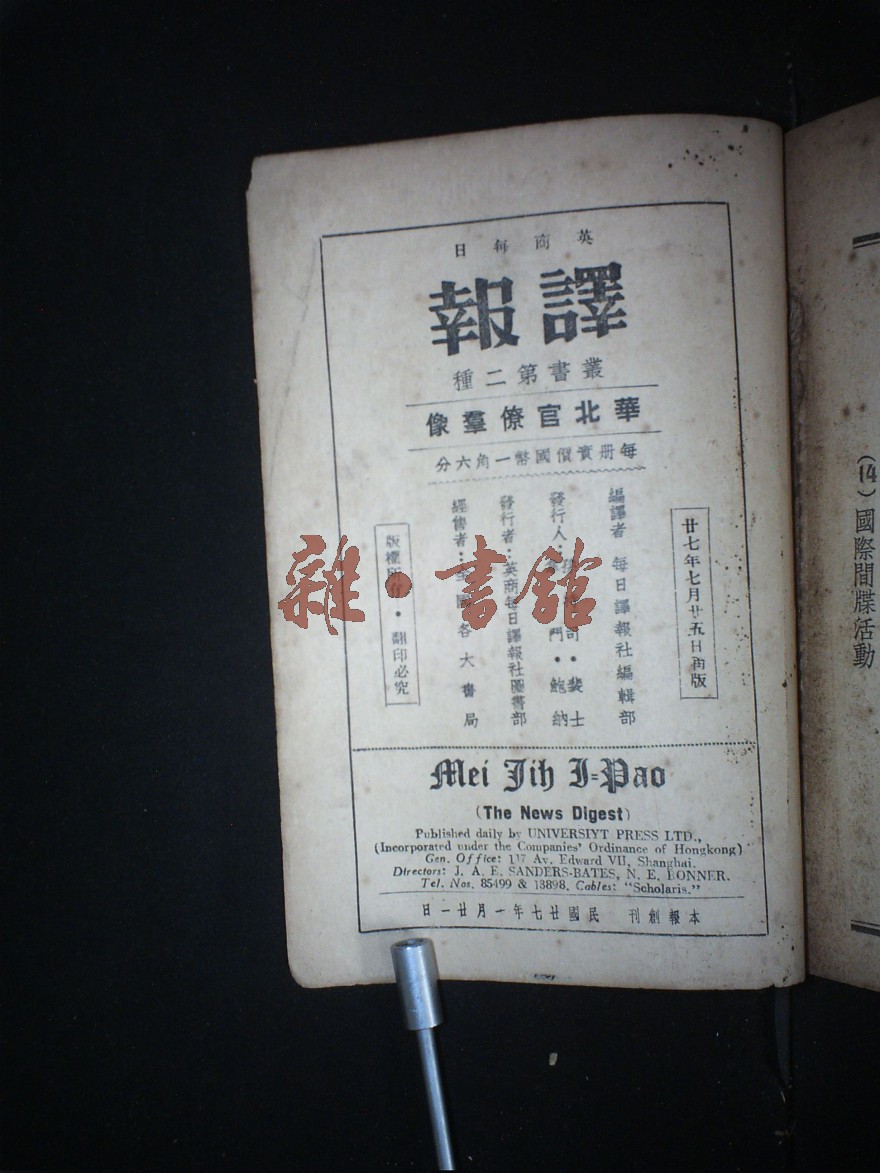 英商每日
譯報
叢書第二種
華北官僚羣像
每册實價國幣一角六分
廿七年七月廿五日再版
編譯者 每日譯報社編輯部
發行人：
士
裴
鮑納
門
發行者：英商每日譯報社圖書部
經售者：全國各大書局
版權所有・翻印必究
Mei Jih I=Pao
(The News Digest)
Published daily by UNIVERSIYT PRESS LTD.,
(Incorporated under the Companies' Ordinance of Hongkong)
Gen. Office: 117 Av. Edward VII, Shanghai.
Directors: J. A. E. SANDERS-BATES, N. E. BONNER.
Tel. Nos. 85499 & 13898. Cables: "Scholaris."
本報創刊 民國廿七年一月廿一日
(14) 國際間諜活動
雜・書館